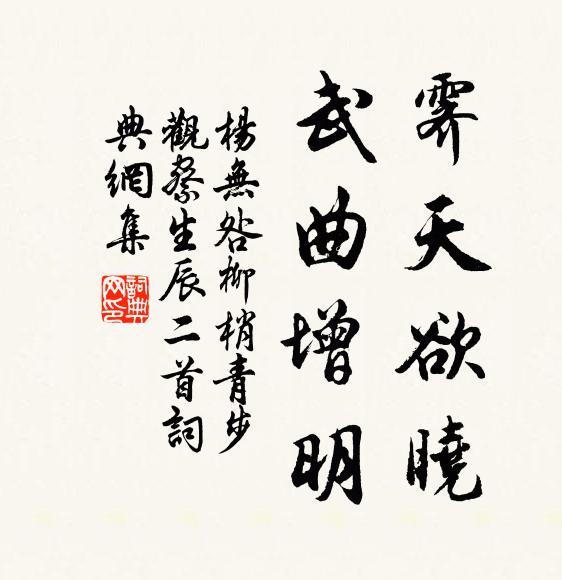 霽天欲曉
武曲增明
楊無咎柳梢青步
觀察生辰二首詞
典網集
詞典網印